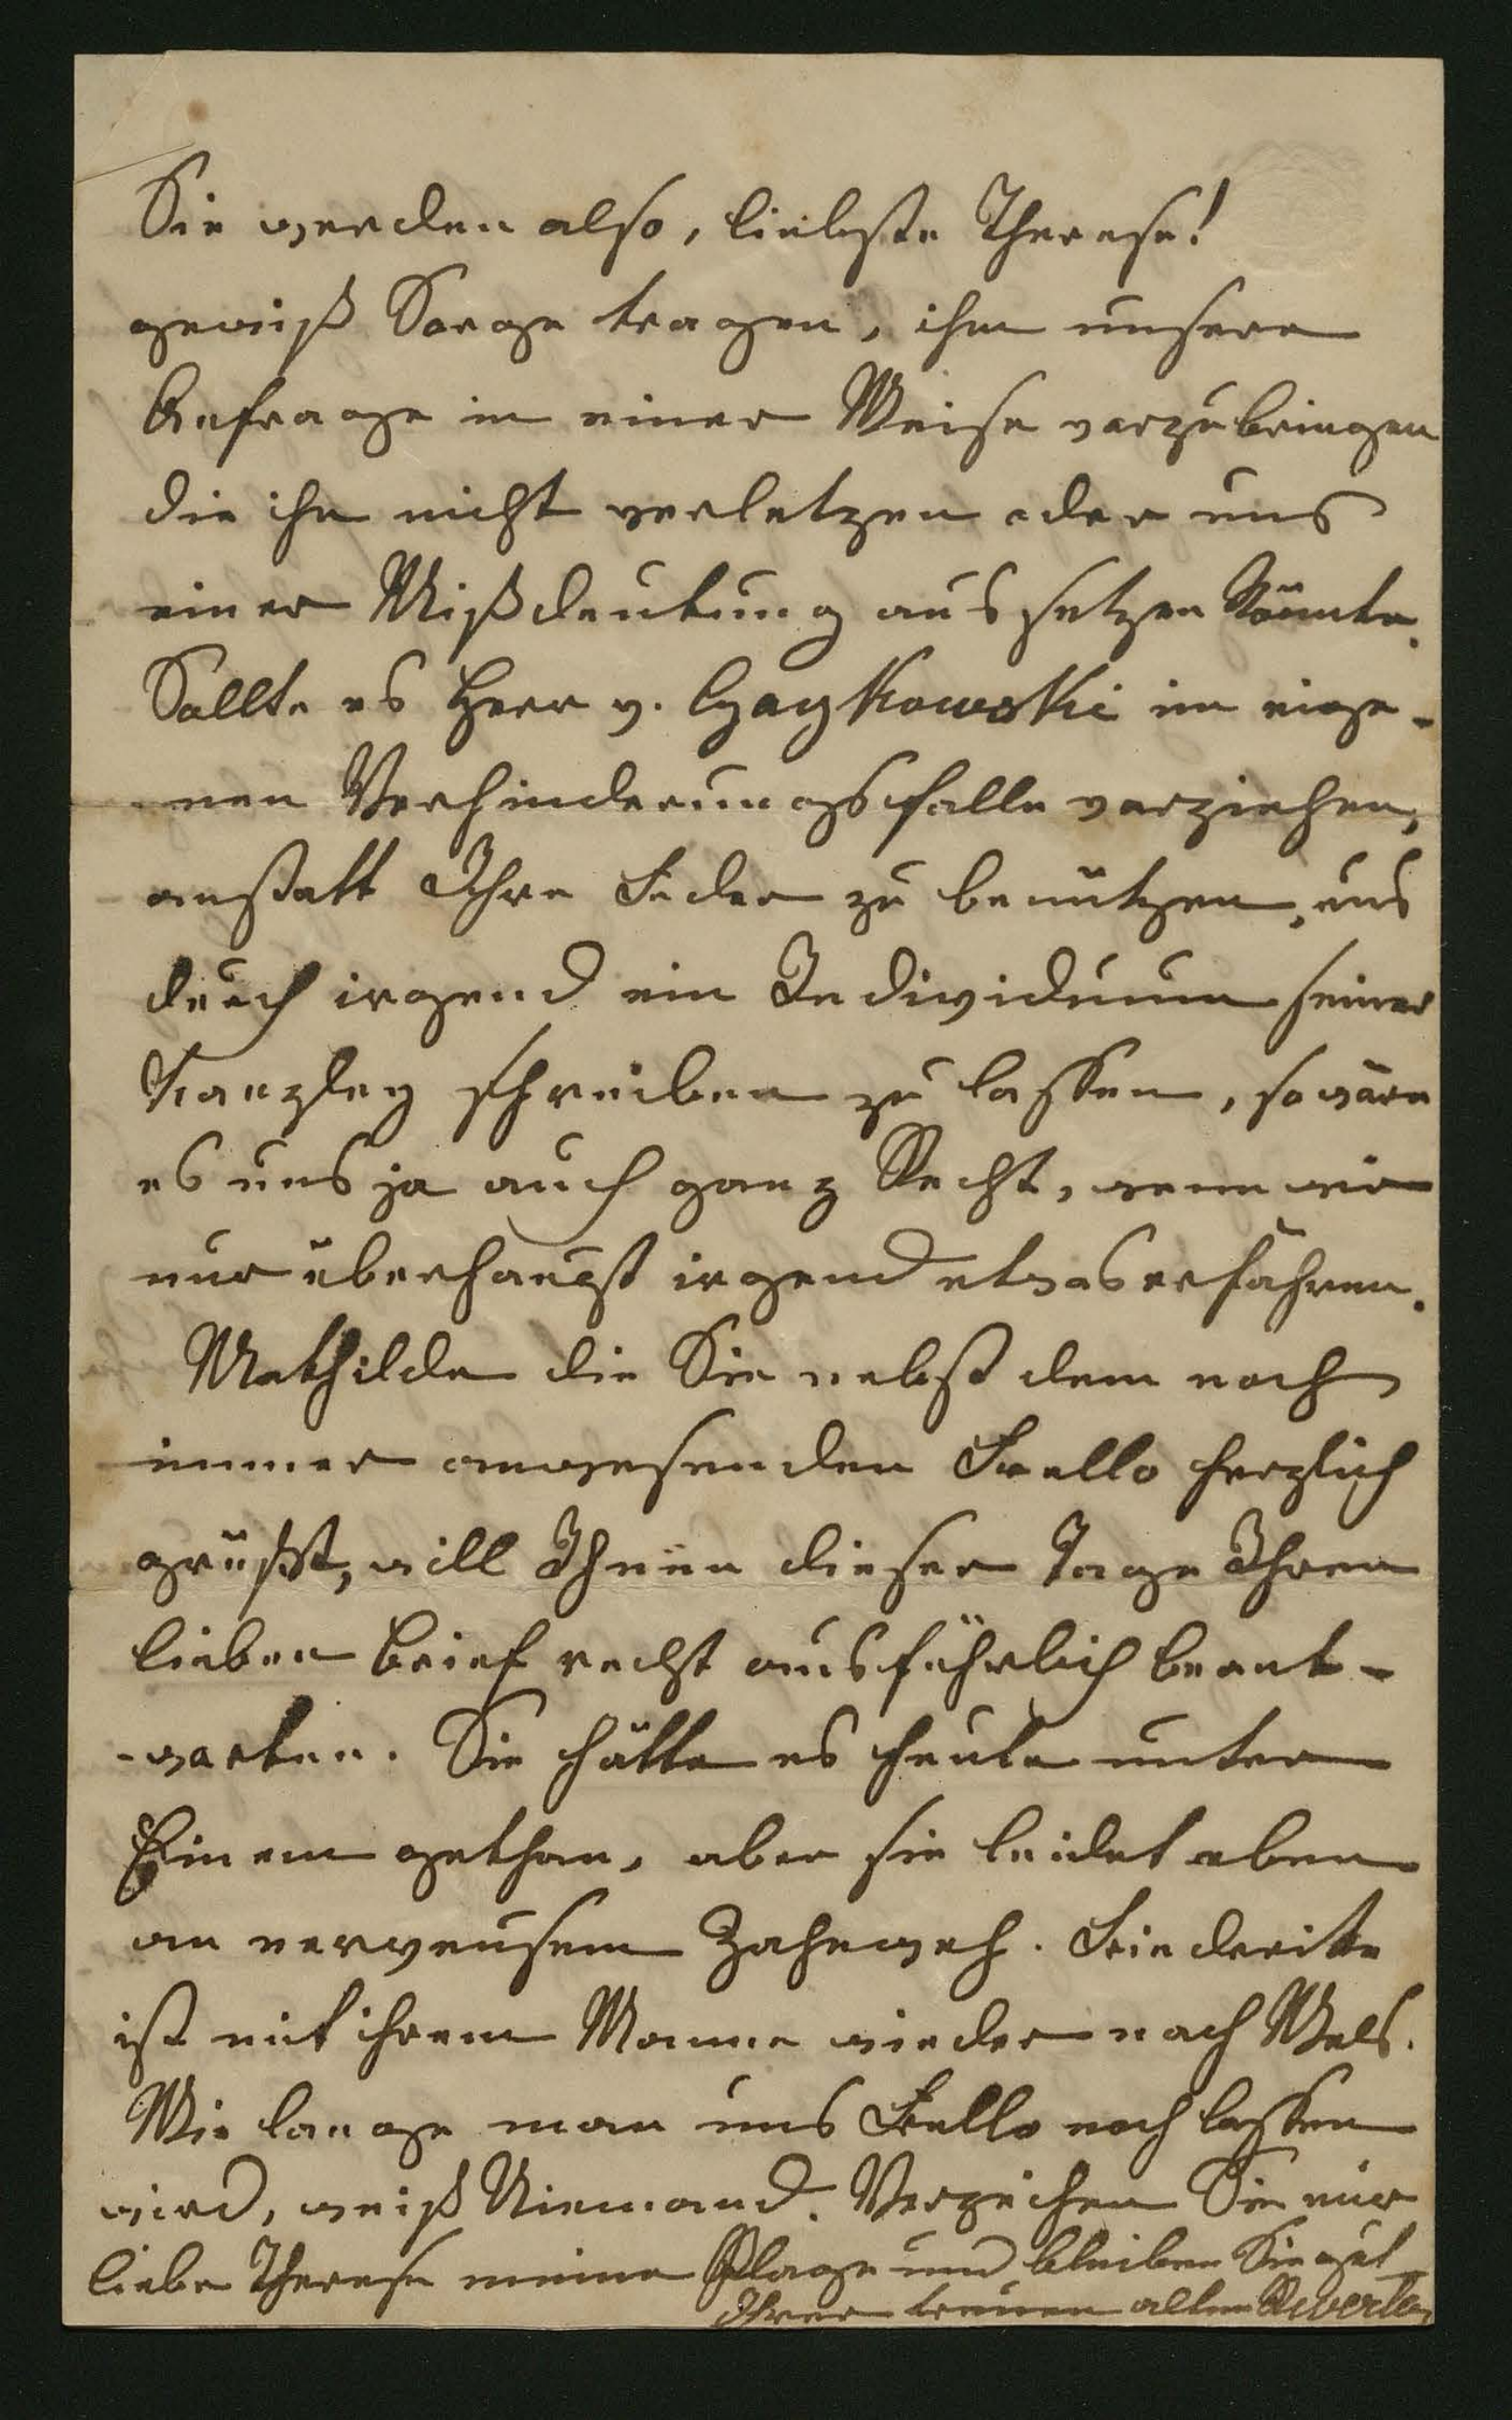 Sie werden also, liebste Therese!
gewiß Sorge tragen, ihm unsere
Anfrage in einer Weise vorzubringen
die ihn nicht verletzen oder uns
einer Mißdeutung aussetzen könnte.
Sollte es Herr v. Czaykowski im eige-
nen Verhinderungsfalle vorziehen,
anstatt Ihre Feder zu benützen, uns
durch irgend ein Individuum seiner
Kanzley schreiben zu lassen, so wäre
es uns ja auch ganz Recht, wenn wir
nur überhaupt irgend etwas erfahren.
Mathilde die Sie nebst dem noch
immer anwesenden Fello herzlich
grüßt, will Ihnen dieser Tage Ihren
lieben Brief recht ausführlich beant-
-worten. Sie hätte es heute unter
Einem gethan, aber sie leidet eben
an nerveusem Zahnweh. Friederike
ist mit ihrem Manne wieder nach Wels.
Wie lange man uns Fello noch lassen
wird, weiß Niemand. Verzeihen Sie mir
liebe Therese meine Plage und bleiben Sie gut
Ihrer treuen alten